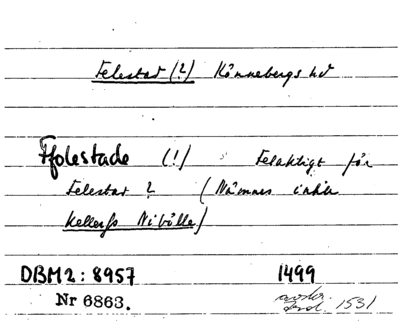 Felestad (?) Rönnebergs hd
Ffolestade (!) Felaktigt för
Felestad ? (Nämnes
Nibölle)
DBM2: 8957 1499
Nr 6863. 1531